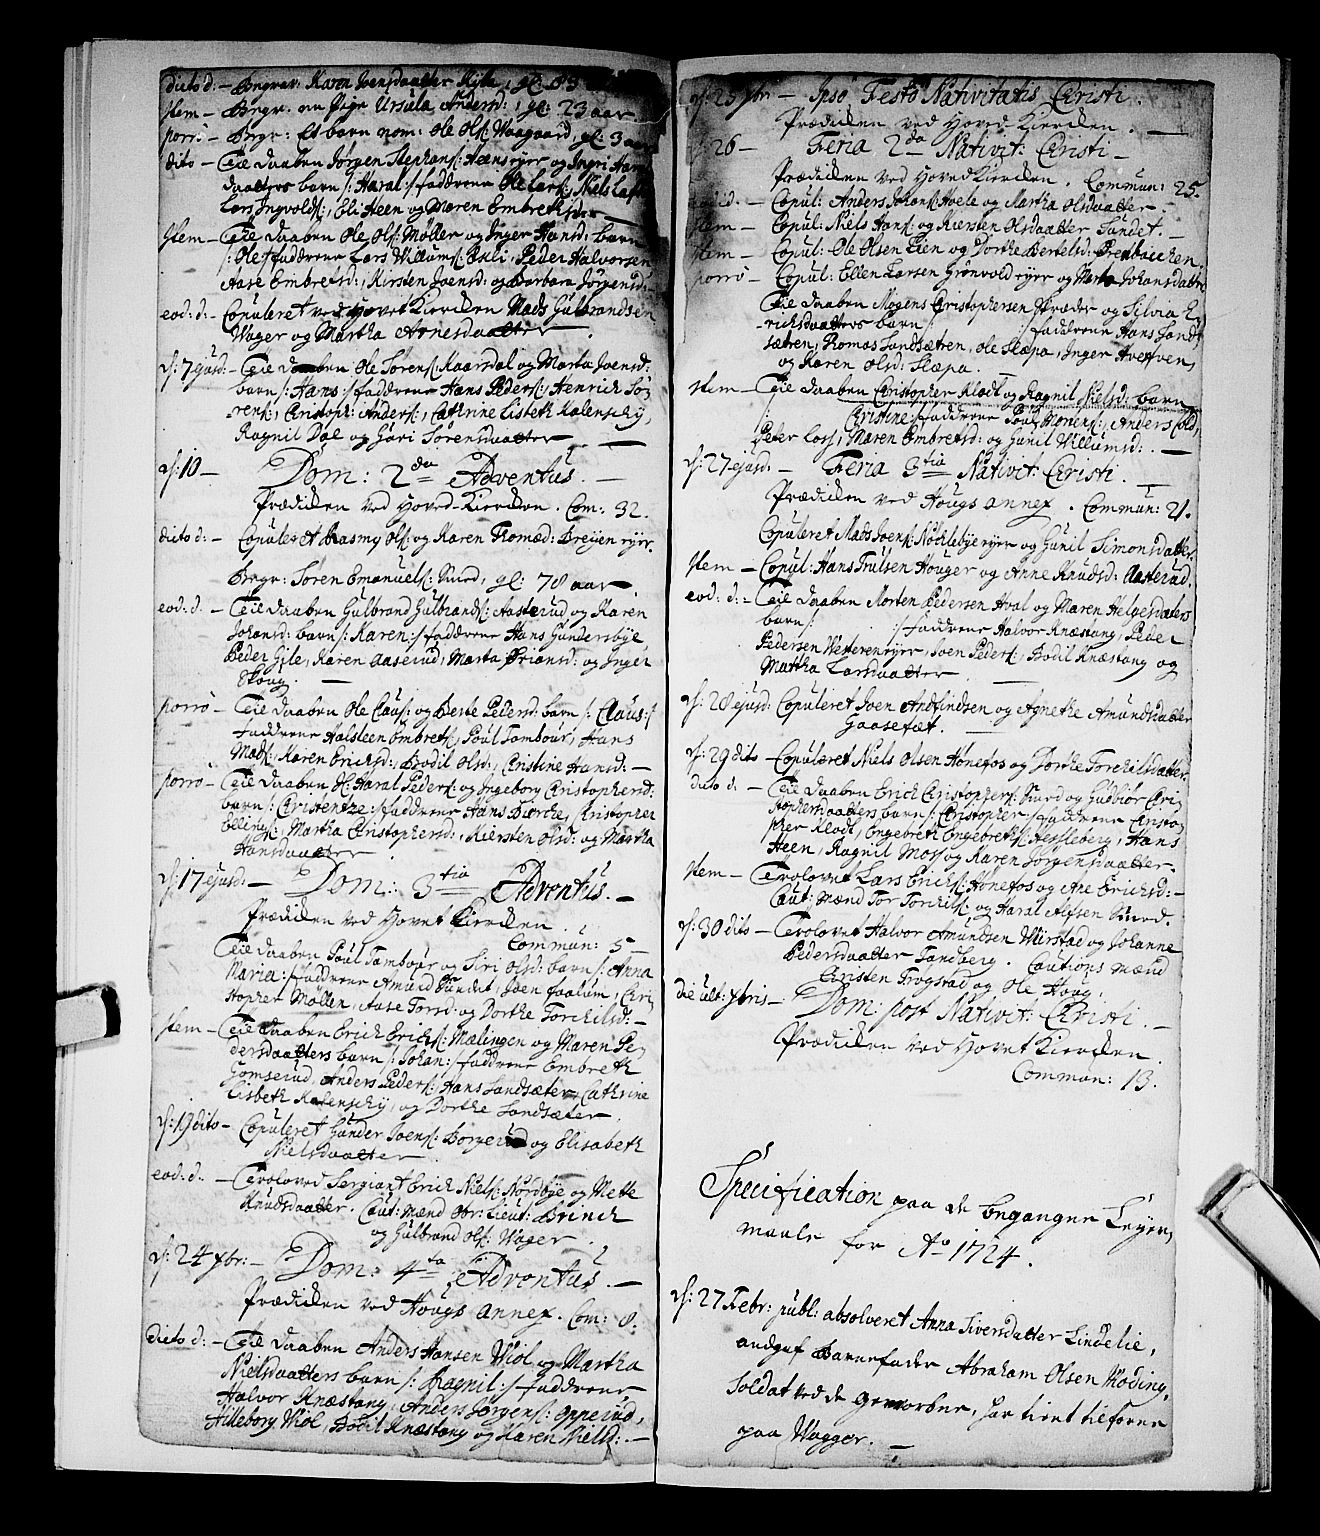 dito d: – Begrav: Karen Joensdaatter Kile, gl: 65
Item – Begr. en Pige Ursula Andersd: gl: 23 aar
porrò – Begr: Et barn nom: Ole Ols: Waagaard, gl: 3 aar
dito – Teie Daaben Jørgen Stephans: Heens eyer og Ingri Hans
daatters barn /: Haral :/ faddrene Ole Lars: Niels
Lars Ingvolds:, Eli Heen og Maren Embretsdr
Item – Teie Daaben Ole Ols: Møller og Inger Hansd: barn
/: Ole :/ faddrene Lars Willums: Peder Halvorsen
Aase Embretsd: Kirsten Joensd: og Barbara Jørgensd:
eod: d: – Copuleret ved Hovet Kircken Mads Gulbrandsen
Wager og Martha Arnesdaatter
d: 7 ejusd: – Teie Daaben Ole Sørens: Kaarsdal og Marta Joensd:
barn /: Hans :/ faddrene Hans Peders:, Henrich Sø-
rens:, Christoph: Anders:, Cathrine Lisbeth Kalenschij,
Ragnil Dal og Gøri Sørensdaatter
d: 10 – Dom: 2da Adventus. –
Prædicken ved Hoved-Kircken. Com: 32.
dito d: – Copuleret Rasmus Ols: og Karen Tromæd: Breijen eyer.
Begr: Søren Emanuels: Smed, gl: 78 aar.
eod: d. – Teie Daaben Gulbrand Gulbrands: Aasterud og Karen
Johansd: barn /: Karen :/ faddrene Hans Gundersbye
Peder Gile, Karen Aaserud, Marta Briansd: og Inger
Skoug. –
porrò – Teie Daaben Ole Claus: og Berte Pedersd: barn /: Claus :/
faddrene Halsteen Embrets:, Poul Tambour, Hans
Mads: Karen Ericksd:, Bodil Olsd:, Christine Hansd: –
porrò – Teie Daaben H: Haral Peders: og Ingeborg Christophersd:
barn /: Christentze :/ faddrene Hans Dircke, Christopher
Ellings:, Martha Christophersd:, Kiersten Olsd: og Martha
Hansdaatter
d: 17 ejusd: – Dom: 3tia Adventus. –
Prædicken ved Hovet Kircken.
Commun: 5 –
Teie Daaben Poul Tambour og Siri Olsd: barn /: Anna
Maria :/ faddrene Amund Sundet, Joen Faalum, Chri
stopher Møllen, Aase Torsd: og Dorthe Torchilsd: –
Item – Teie Daaben Erick Ericks: Mælingen og Maren Pe-
dersdaatters barn /: Johan :/ faddrene Embreth
Gomserud, Anders Peders: Hans Sandsæter, Cathrine
Lisbeth Kalenschij, og Dorthe Sandsæter.
d: 19 dito – Copuleret Gunder Joens: Borgerud og Elisabeth
Nielsdaatter.
eod: d. – Troloved Sergiant Erick Niels: Nordbye og Mette
Knudsdaatter. Caut: Mænd Obr: Lieut: Brinck
og Gulbrand Ols: Wager.
d: 24 Xbr: – Dom: 4ta Adventus. –
Prædicken ved Hougs Annex. Com: 8.
dito d: – Teie Daaben Anders Hansen Wiol og Martha
Nielsdaatters barn /: Ragnil :/ faddrene
Halvor Knæstang, Anders Jørgens: Opperud,
Hilleborg Wiol, Bodil Knæstang og Karen Nielsd: –
d: 25 Xbr – Ipso Festo Nativitatis Christi.
Prædicken ved Hoved Kircken. –
d: 26 – Feria 2da Nativit: Christi –
Prædicken ved Hoved Kircken. Commun: 25.
eod: d. – Copul: Anders Johans: Hvele og Martha Olsdaatter.
Item – Copul: Niels Hans: og Kiersten Olsdaatter Sundet. –
Item – Copul: Ole Olsen Lien og Dorthe Bertelsd: Breibacken.
porrò – Copul: Ellen Larsen Grønvold eyer og Marta Johansdatter
Teie Daaben Mogens Christophersen Skreder og Silvia E-
ricksdaatters barn /: :/ faddrene Hans Sand-
sætren, Thomas Sandsætren, Ole Skepa, Inger
og Karen Olsd: Skepa.
Item – Teie Daaben Christopher Klodt og Ragnil Nielsd: barn
/: Christine :/ faddrene Poul, Anders Cold,
Peter Loss, Maren Embretsd: og Gunil Willumsd: –
d: 27 ejusd: – Feria 3tia Nativit: Christi. –
Prædicken ved Hougs Annex. Commun: 21.
Copuleret Mads Joens: Nøcklebye eyer og Gunil Simonsdatter.
Item – Copul: Hans Trulsen Houger og Anne Knudsd: Aasterud.
eod: d: – Teie Daaben Morten Pedersen Hval og Maren Helgesdatters
barn /: :/ faddrene Halvor Knæstang, Peder
Pedersen Westeren eyer, Joen Peders:, Bodil Knæstang og
Martha Larsdaatter
d: 28 ejusd: Copuleret Iven Andfindsen og Agnethe Amundsdatter
Gaasefæt. –
d: 29 dito – Copuleret Niels Olsen Hønefos og Dorthe Torchilsdatter.
dito d: – Teie Daaben Erick Christophers: Smed og Gudbiør Chri
stophersdaatters barn /: Christopher :/ faddrene Christo-
pher Klodt, Engebreth Engebreths: Hessleberg, Hans
Heen, Ragnil Moss og Karen Jørgensdaatter.
Item – Trolovet Lars Ericks: Hønefos og Ane Ericksd: –
Caut: Mænd Tor Torchils: og Haral Alfsen Smed.
d: 30 dito – Trolovet Halvor Amundsen Mørstad og Johanne
Pedersdaatter Tandberg. Cautions Mænd
Christen Frogstad og Ole Houg.
die ult: Xbris – Dom: post Nativit: Christi. –
Prædicken ved Hovet Kircken.
Commun: 13.
Specification paa de begangne Leyer-
maale for Ao 1724.
d: 27 Febr: publ: absolveret Anna Siversdatter Lindelie,
andgaf Barnefader Abraham Olsen Moding,
Soldat ved de Geworbne, har tient tilforne
paa Wagger. –